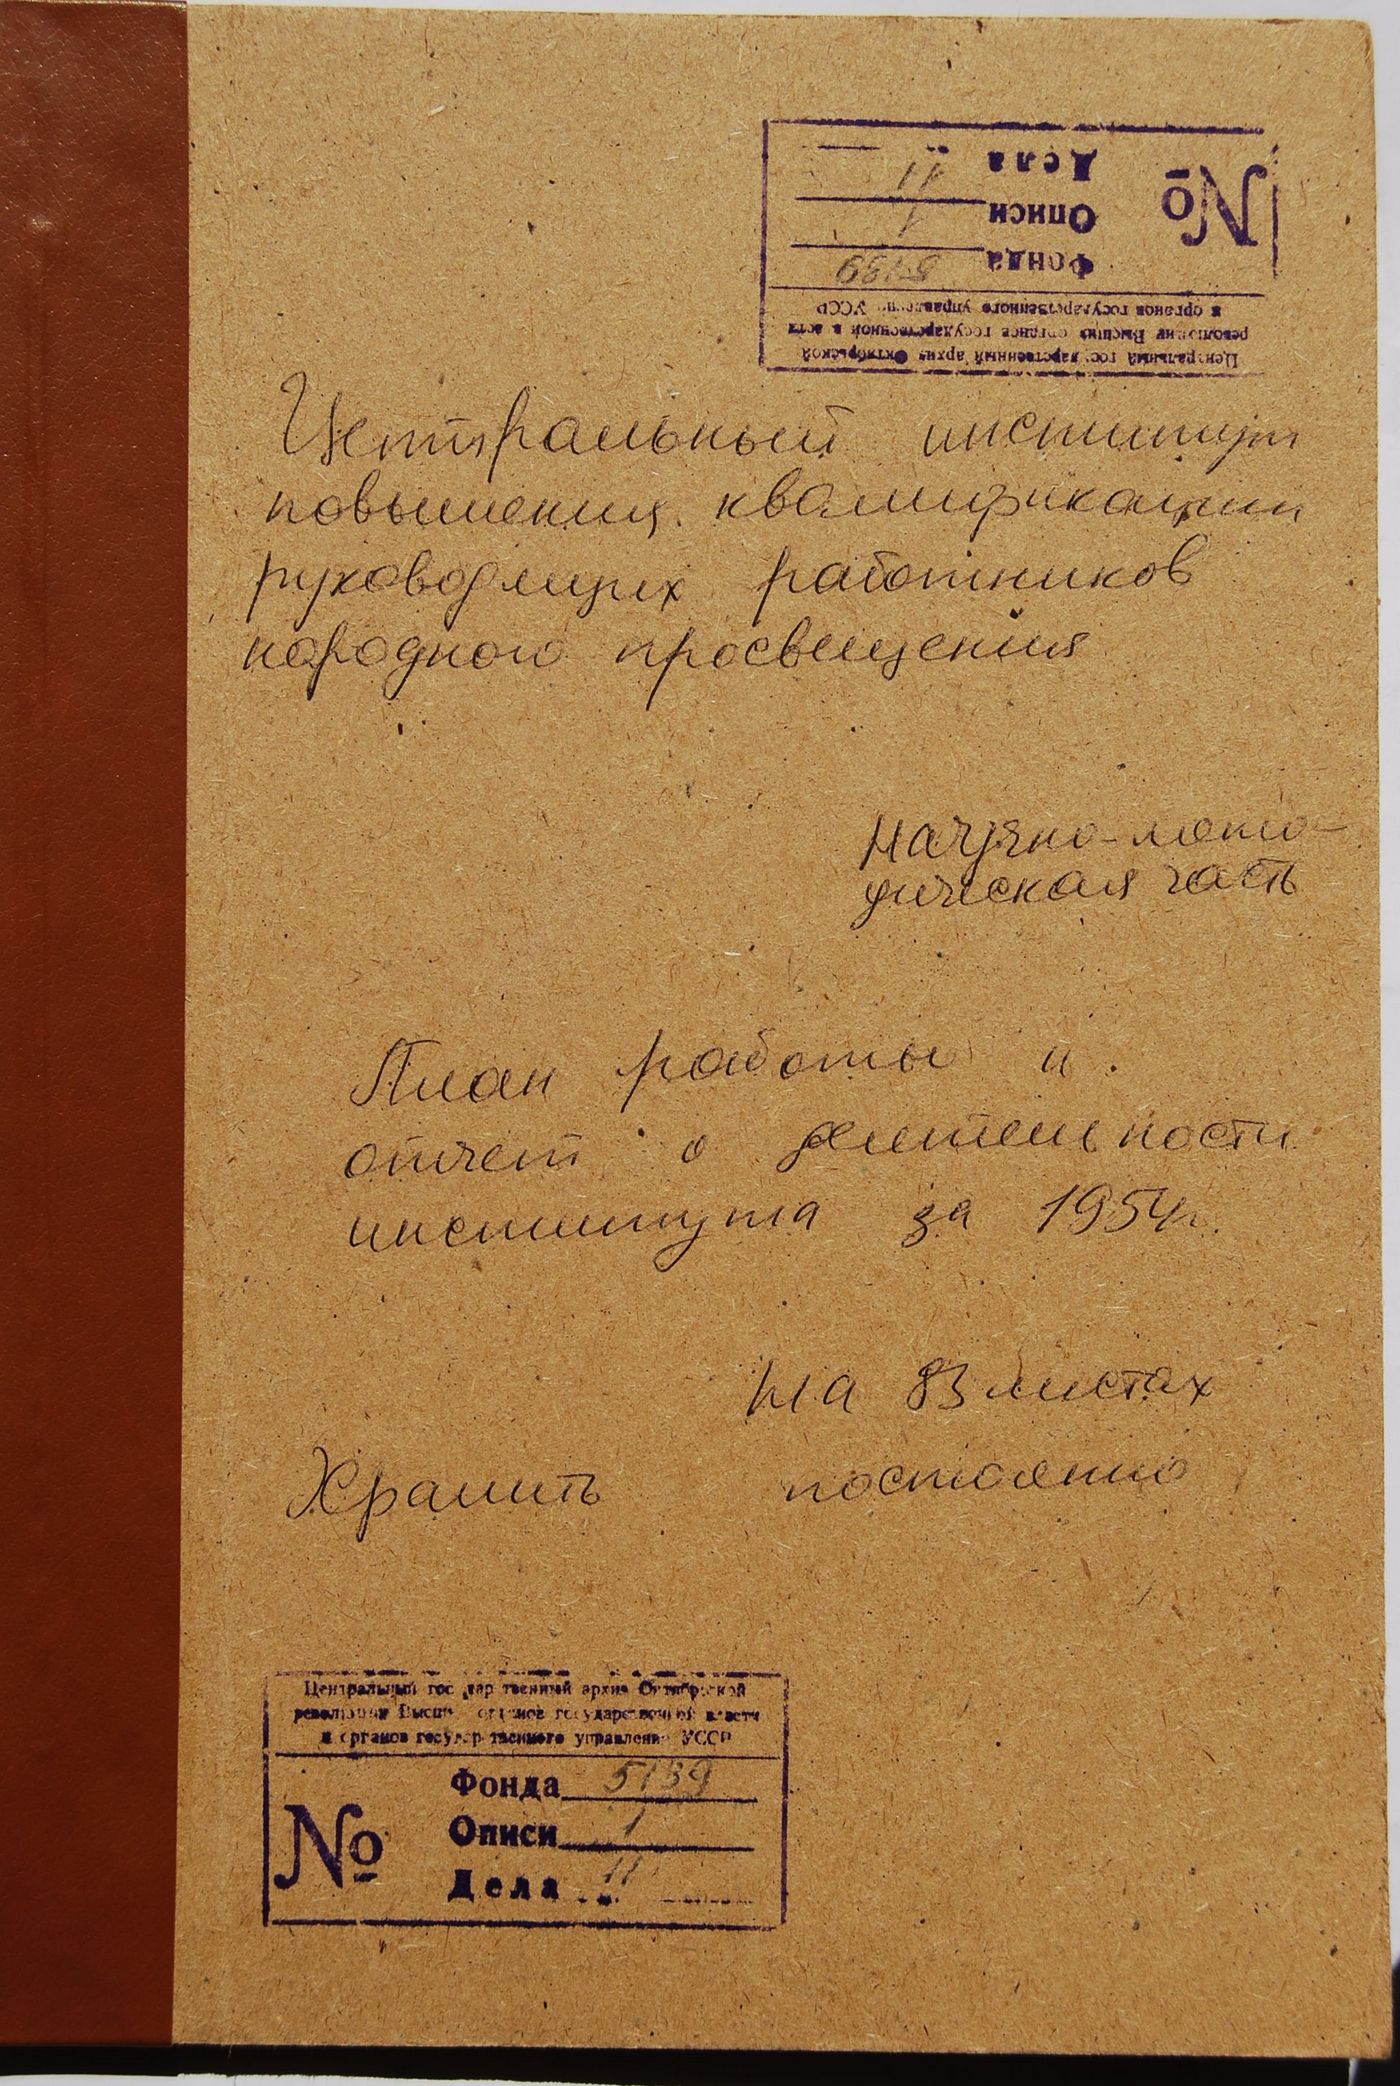 Центральный государственный архив Октябрьской
революции Высших органов государственной власти
и органов государственного управления УССР
№
Фонда 5139
Описи 1
Дела 11
Центральный институт
повышения квалификации
руководящих работников
народного просвещения
Научно-мето-
дическая часть
План работы и
отчет о деятельности
института за 1954г.
На 83 листах
Хранить постоянно
Центральный государственный архив Октябрьской
революции Высших органов государственной власти
и органов государственного управления УССР
№
Фонда 5139
Описи 1
Дела 11